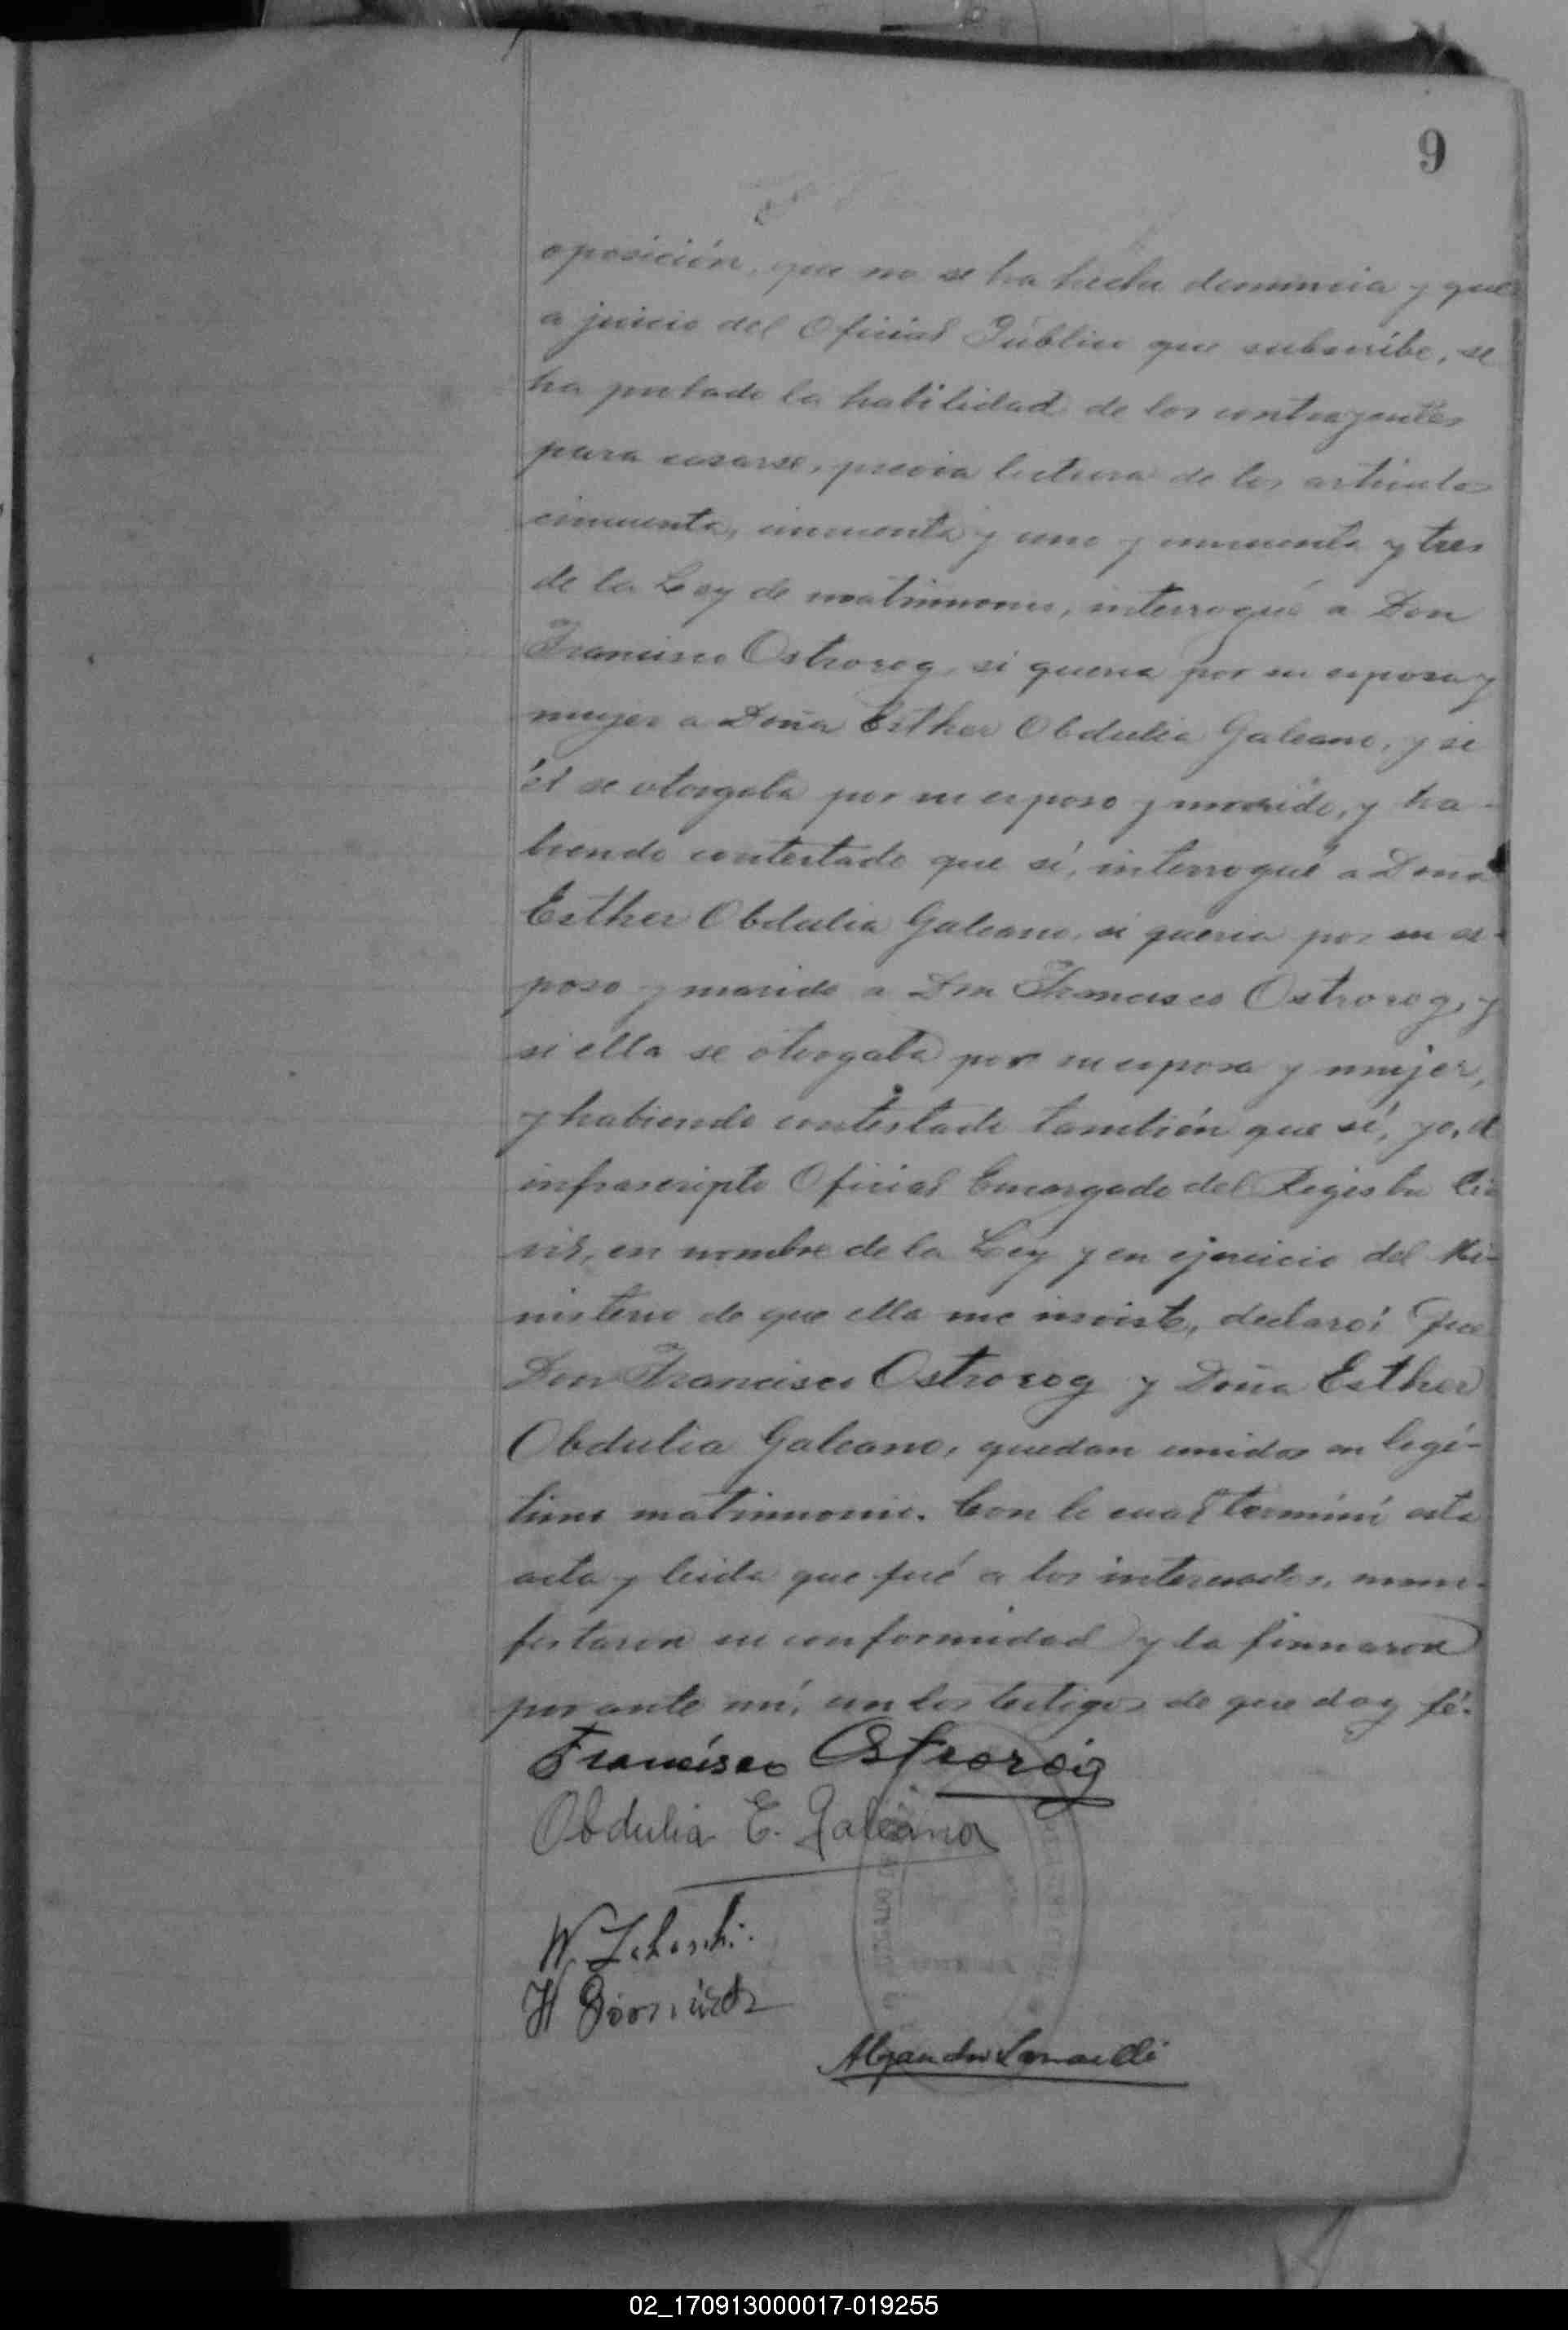 9
oposición, que no se ha hecho denuncia y que
a juicio del Oficial Público que subscribe, se
ha probado la habilidad de los contrayentes
para casarse, previa lectura de los artículos
cincuenta, cincuenta y uno y cincuenta y tres
de la Ley de matrimonio, interrogué a Don
Francisco Ostrorog, si queria por su esposa y
mujer a Doña Esther Obdulia Galeano, y si
él se otorgaba por su esposo y marido, y ha-
biendo contestado que sí, interrogué a Doña
Esther Obdulia Galeano, si queria por su es-
poso y marido a Don Francisco Ostrorog, y
si ella se otorgaba por su esposa y mujer,
y habiendo contestado también que sí, yo, el
infrascripto Oficial Encargado del Registro Ci-
vil, en nombre de la Ley y en ejercicio del Mi-
nisterio de que ella me inviste, declaro: Que
Don Francisco Ostrorog y Doña Esther
Obdulia Galeano, quedan unidos en legí-
timo matrimonio. Con lo cual terminó esta
acta y leida que fué a los interesados, mani-
festaron su conformidad y la firmaron
por ante mí, con los testigos de que doy fé.
Francisco Ostroróg
Obdulia E. Galeano
W.
H
Alejandro
02_170913000017-019255